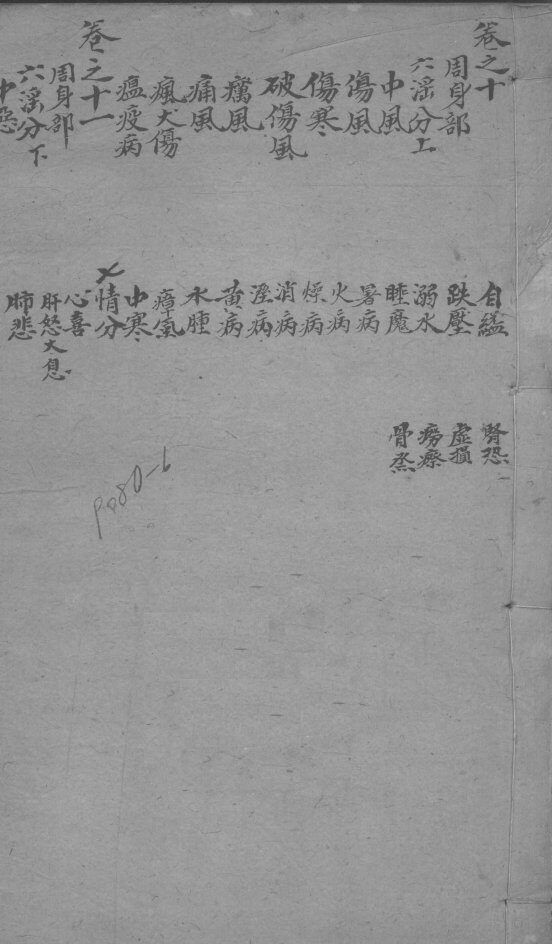 卷之十
周身部
六淫分上
中風
傷風
傷寒
破傷風
癘風
痛風
瘋犬傷
瘟疫病
卷之十一
周身部
六淫分下
中惡
自縊
跌壓
溺水
睡魔
暑病
火病
燥病
消病
溼病
黃病
水腫
瘴氣
中寒
七情分
心喜
肝怒 太息
肺悲
腎恐
虛損
癆瘵
骨蒸